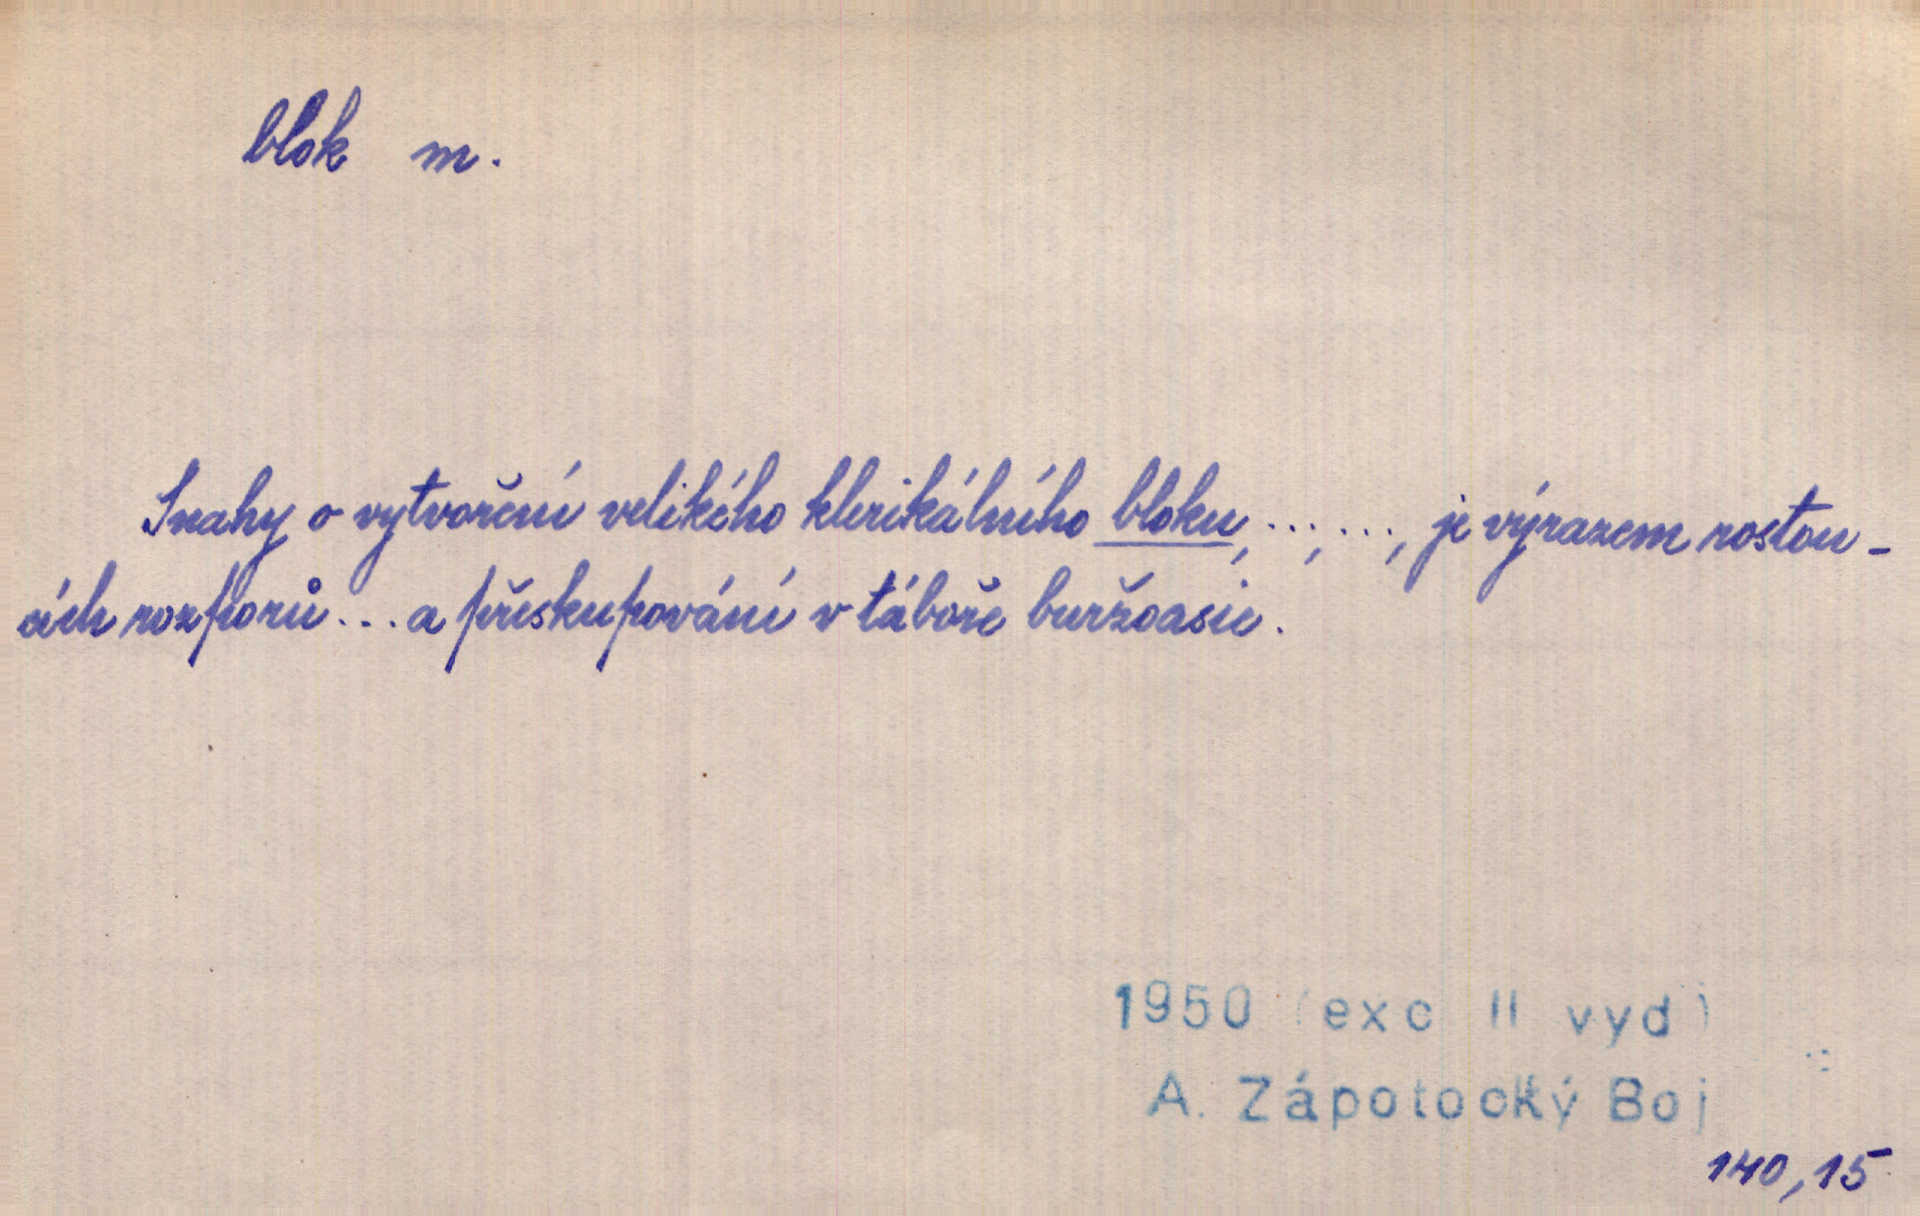 blok m.
Snahy o vytvoření velikého klerikálního bloku, ..., ..., je výrazem rostou-
cích rozporů ... a přeskupování v táboře buržoasie.
1950 (exc II vyd)
A. Zápotocký Boj
140,15